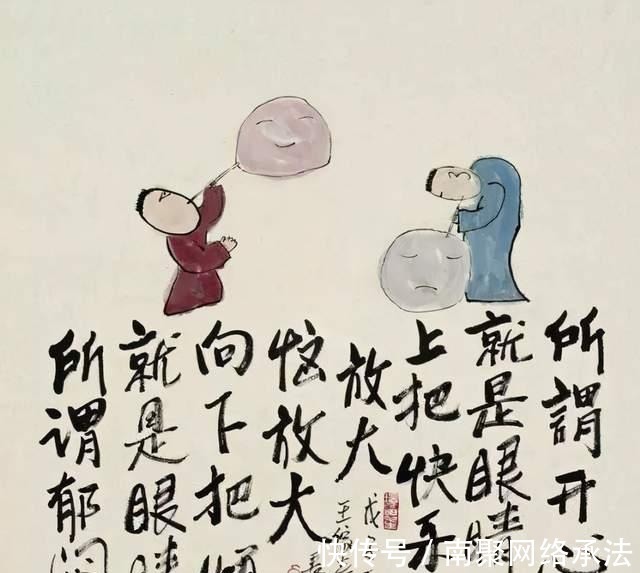 所謂开
就是眼睛
上把快乐
放大
所谓郁闷
就是眼睛
向下把烦
恼放大
戊
王
快传号 / 南聚网络承法